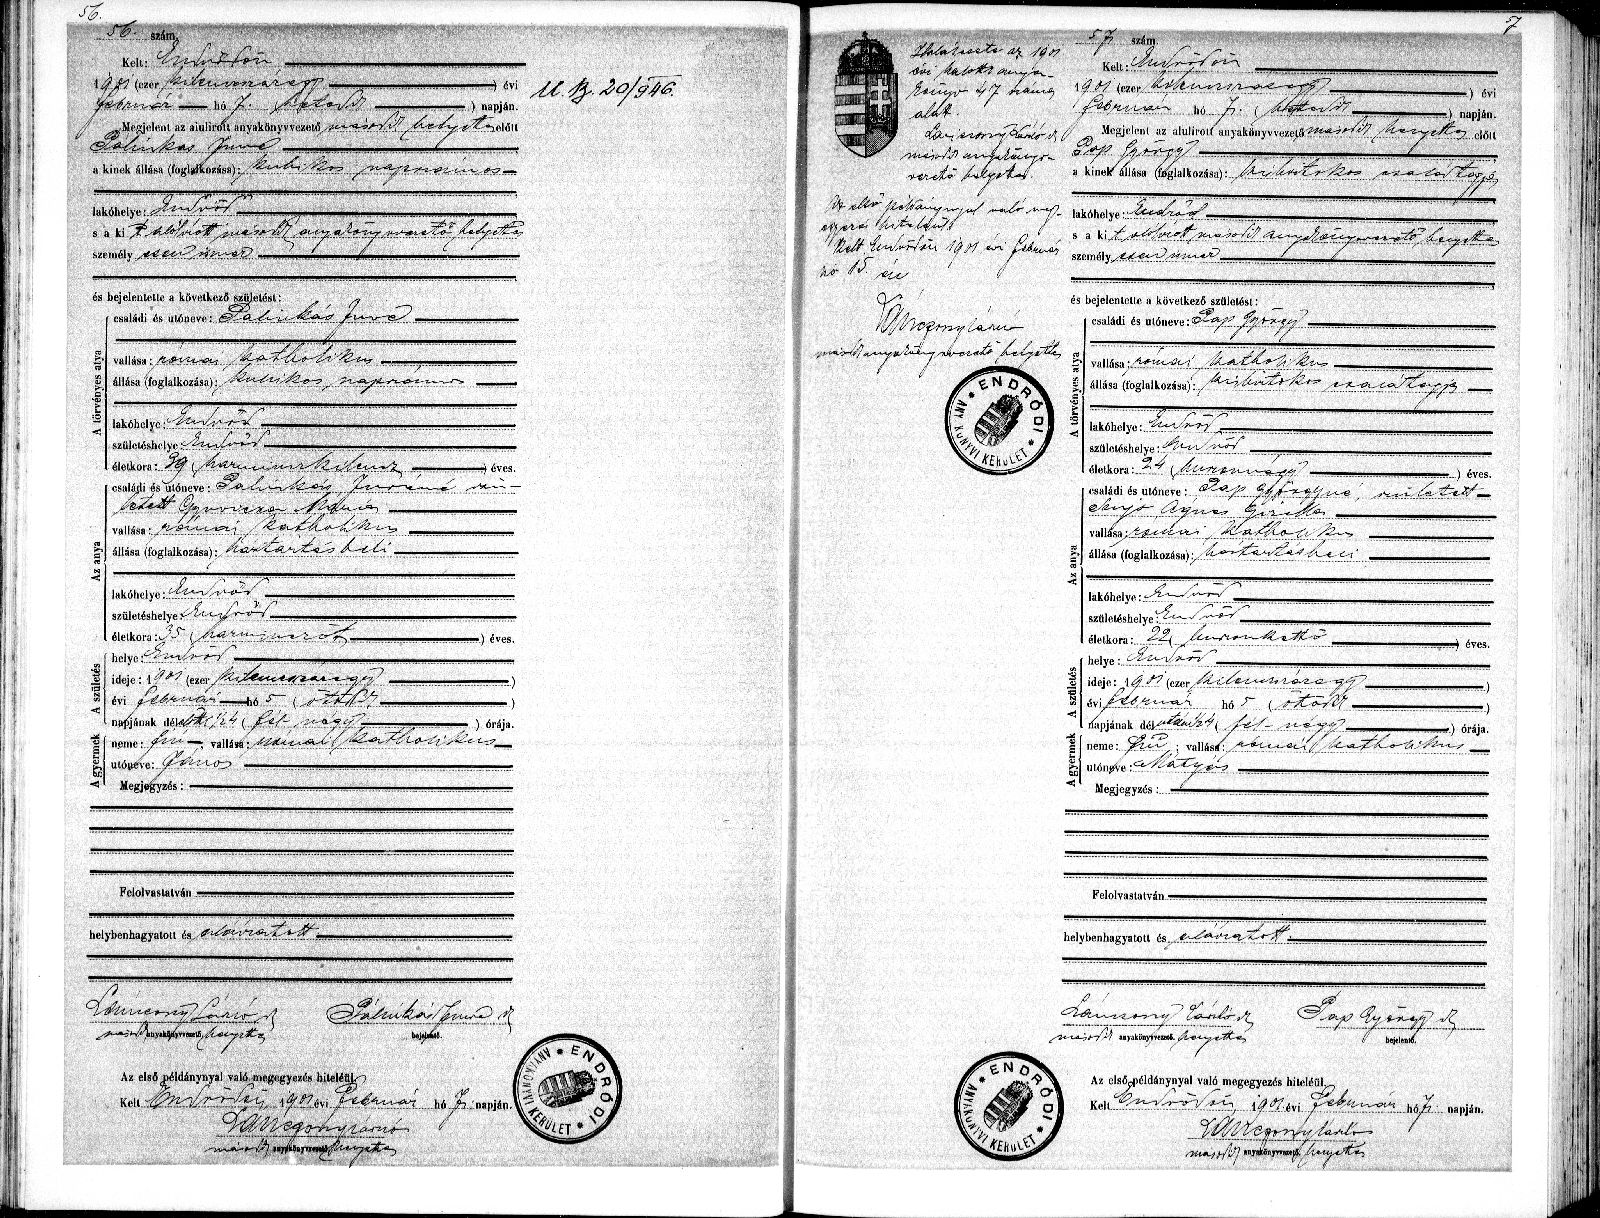 56.
56. szám.
Kelt: Endrődön
1901 (ezer kilenczszázegy ) évi
február hó 7. (hetedik ) napján.
Megjelent az alulirott anyakönyvvezető második helyettes előtt
Palinkás Imre
a kinek állása (foglalkozása): kubikos napszámos
lakóhelye: Endrőd
s a kit alólirott második anyakönyvvezető helyettes
személyesen ismer
és bejelentette a következő születést:
A törvényes atya
családi és utóneve: Palinkás Imre
vallása: római katholikus
állása (foglalkozása): kubikos, napszámos
lakóhelye: Endrőd
születéshelye: Endrőd
életkora: 39 (harminczkilencz ) éves.
Az anya
családi és utóneve: Palinkás Imréné szü-
letett Mária
vallása: római katholikus
állása (foglalkozása): háztartásbeli
lakóhelye: Endrőd
születéshelye: Endrőd
életkora: 35 (harminczöt ) éves.
A születés
helye: Endrőd
ideje: 1901 (ezer kilenczszázegy )
évi február hó 5 (ötödik )
napjának dél 1/24 (fél négy ) órája.
A gyermek
neme: fiu; vallása: római katholikus
utóneve: János
Megjegyzés:
Felolvastatván
helybenhagyatott és aláiratott
Lánczony László sk
második anyakönyvvezető helyettes
Pálinkás Imre sk
bejelentő.
Az első példánynyal való megegyezés hiteléül.
Kelt Endrődön, 1901 évi február hó 7 napján.
Lánczony László
második anyakönyvvezető helyettes
ENDRŐDI ANYAKÖNYVI KERÜLET
U. Bz. 20/946.
7
Halálesete az 1901
évi halotti anya-
könyv 47 száma
alatt.
Lánczony László sk
második anyakönyv-
vezető helyettes.
Az első példánynyal való meg-
egyezés hiteléül
Kelt Endrődön 1901 évi február
hó 15 én
Lánczony László
második anyakönyvvezető helyettes
ENDRŐDI ANYAKÖNYVI KERÜLET
57. szám.
Kelt: Endrődön
1901 (ezer kilenczszázegy ) évi
február hó 7. (hetedik ) napján.
Megjelent az alulirott anyakönyvvezető második helyettes előtt
Pap György
a kinek állása (foglalkozása): kisbirtokos családtagja
lakóhelye: Endrőd
s a kit alólirott második anyakönyvvezető helyettes
személyesen ismer
és bejelentette a következő születést:
A törvényes atya
családi és utóneve: Pap György
vallása: római katholikus
állása (foglalkozása): kisbirtokos családtagja
lakóhelye: Endrőd
születéshelye: Endrőd
életkora: 24 (huszonnégy ) éves.
Az anya
családi és utóneve: Pap Györgyné, született
Ágnes Gizella
vallása: római katholikus
állása (foglalkozása): háztartásbeli
lakóhelye: Endrőd
születéshelye: Endrőd
életkora: 22 (huszonkettő ) éves.
A születés
helye: Endrőd
ideje: 1901 (ezer kilenczszázegy )
évi február hó 5 (ötödik )
napjának délután 1/24 (fél négy ) órája.
A gyermek
neme: fiú; vallása: római katholikus
utóneve: Mátyás
Megjegyzés:
Felolvastatván
helybenhagyatott és aláiratott.
Lánczony László sk
második anyakönyvvezető helyettes
Pap György sk
bejelentő.
ENDRŐDI ANYAKÖNYVI KERÜLET
Az első példánynyal való megegyezés hiteléül.
Kelt Endrődön, 1901 évi február hó 7 napján.
Lánczony László
második anyakönyvvezető helyettes